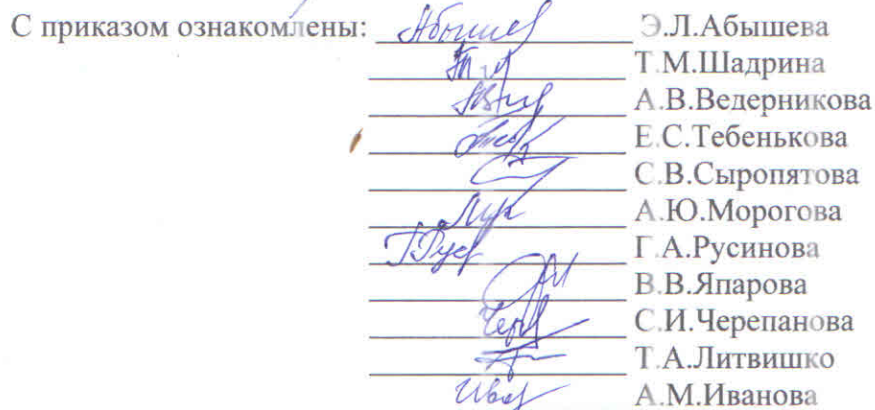 С приказом ознакомлены: Абышев Э.Л.Абышева
Т.М.Шадрина
А.В.Ведерникова
Е.С.Тебенькова
С.В.Сыропятова
А.Ю.Морогова
ГРус Г.А.Русинова
В.В.Япарова
Чер С.И.Черепанова
Т.А.Литвишко
Ива А.М.Иванова